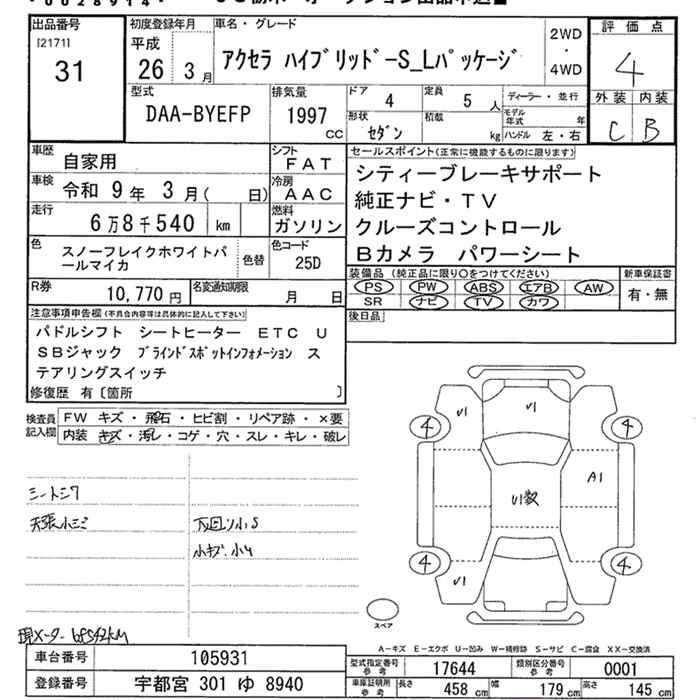 0028914
出品番号
[2171]
31
初度登録年月
平成
26 年 3 月
車名・グレード
アクセラ ハイブリッド-S_Lパッケージ
2WD
・
4WD
評価点
4
外装 内装
C B
型式
DAA-BYEFP
排気量
1997
cc
ドア 4
定員 5 人
形状 セダン
積載 kg
ディーラー・並行
モデル年式 年
ハンドル 左・右
車歴 自家用
シフト FAT
車検 令和 9年 3月( 日)
冷房 AAC
走行 6万8千540 km
燃料 ガソリン
色 スノーフレイクホワイトパールマイカ
色替
色コード 25D
R券 10,770円
名変通知期限 月 日
セールスポイント(正常に機能するものに限ります)
シティーブレーキサポート
純正ナビ・TV
クルーズコントロール
Bカメラ パワーシート
装備品 (純正品に限り○をつけてください)
PS PW ABS エアB AW
SR ナビ TV カワ
新車保証書
有・無
後日品
注意事項申告欄(不具合内容等は具体的に記入して下さい)
パドルシフト シートヒーター ETC U
SBジャック ブラインドスポットインフォメーション ス
テアリングスイッチ
修復歴 有〔箇所 〕
検査員
記入欄
FW キズ・飛石・ヒビ割・リペア跡・×要
内装 キズ・汚レ・コゲ・穴・スレ・キレ・破レ
シートシワ
天張小シミ
下回り小S
小キズ.小U
現メーター 68542KM
U1
U1
4
4
A1
U1数
4
4
U1
スペア
A-キズ E-エクボ U-凹み W-補修跡 S-サビ C-腐食 XX-交換済
車台番号 105931
登録番号 宇都宮 301 ゆ 8940
型式指定番号 参考 17644
類別区分番号 参考 0001
車庫証明用 参考 長さ 458 cm 幅 179 cm 高さ 145 cm